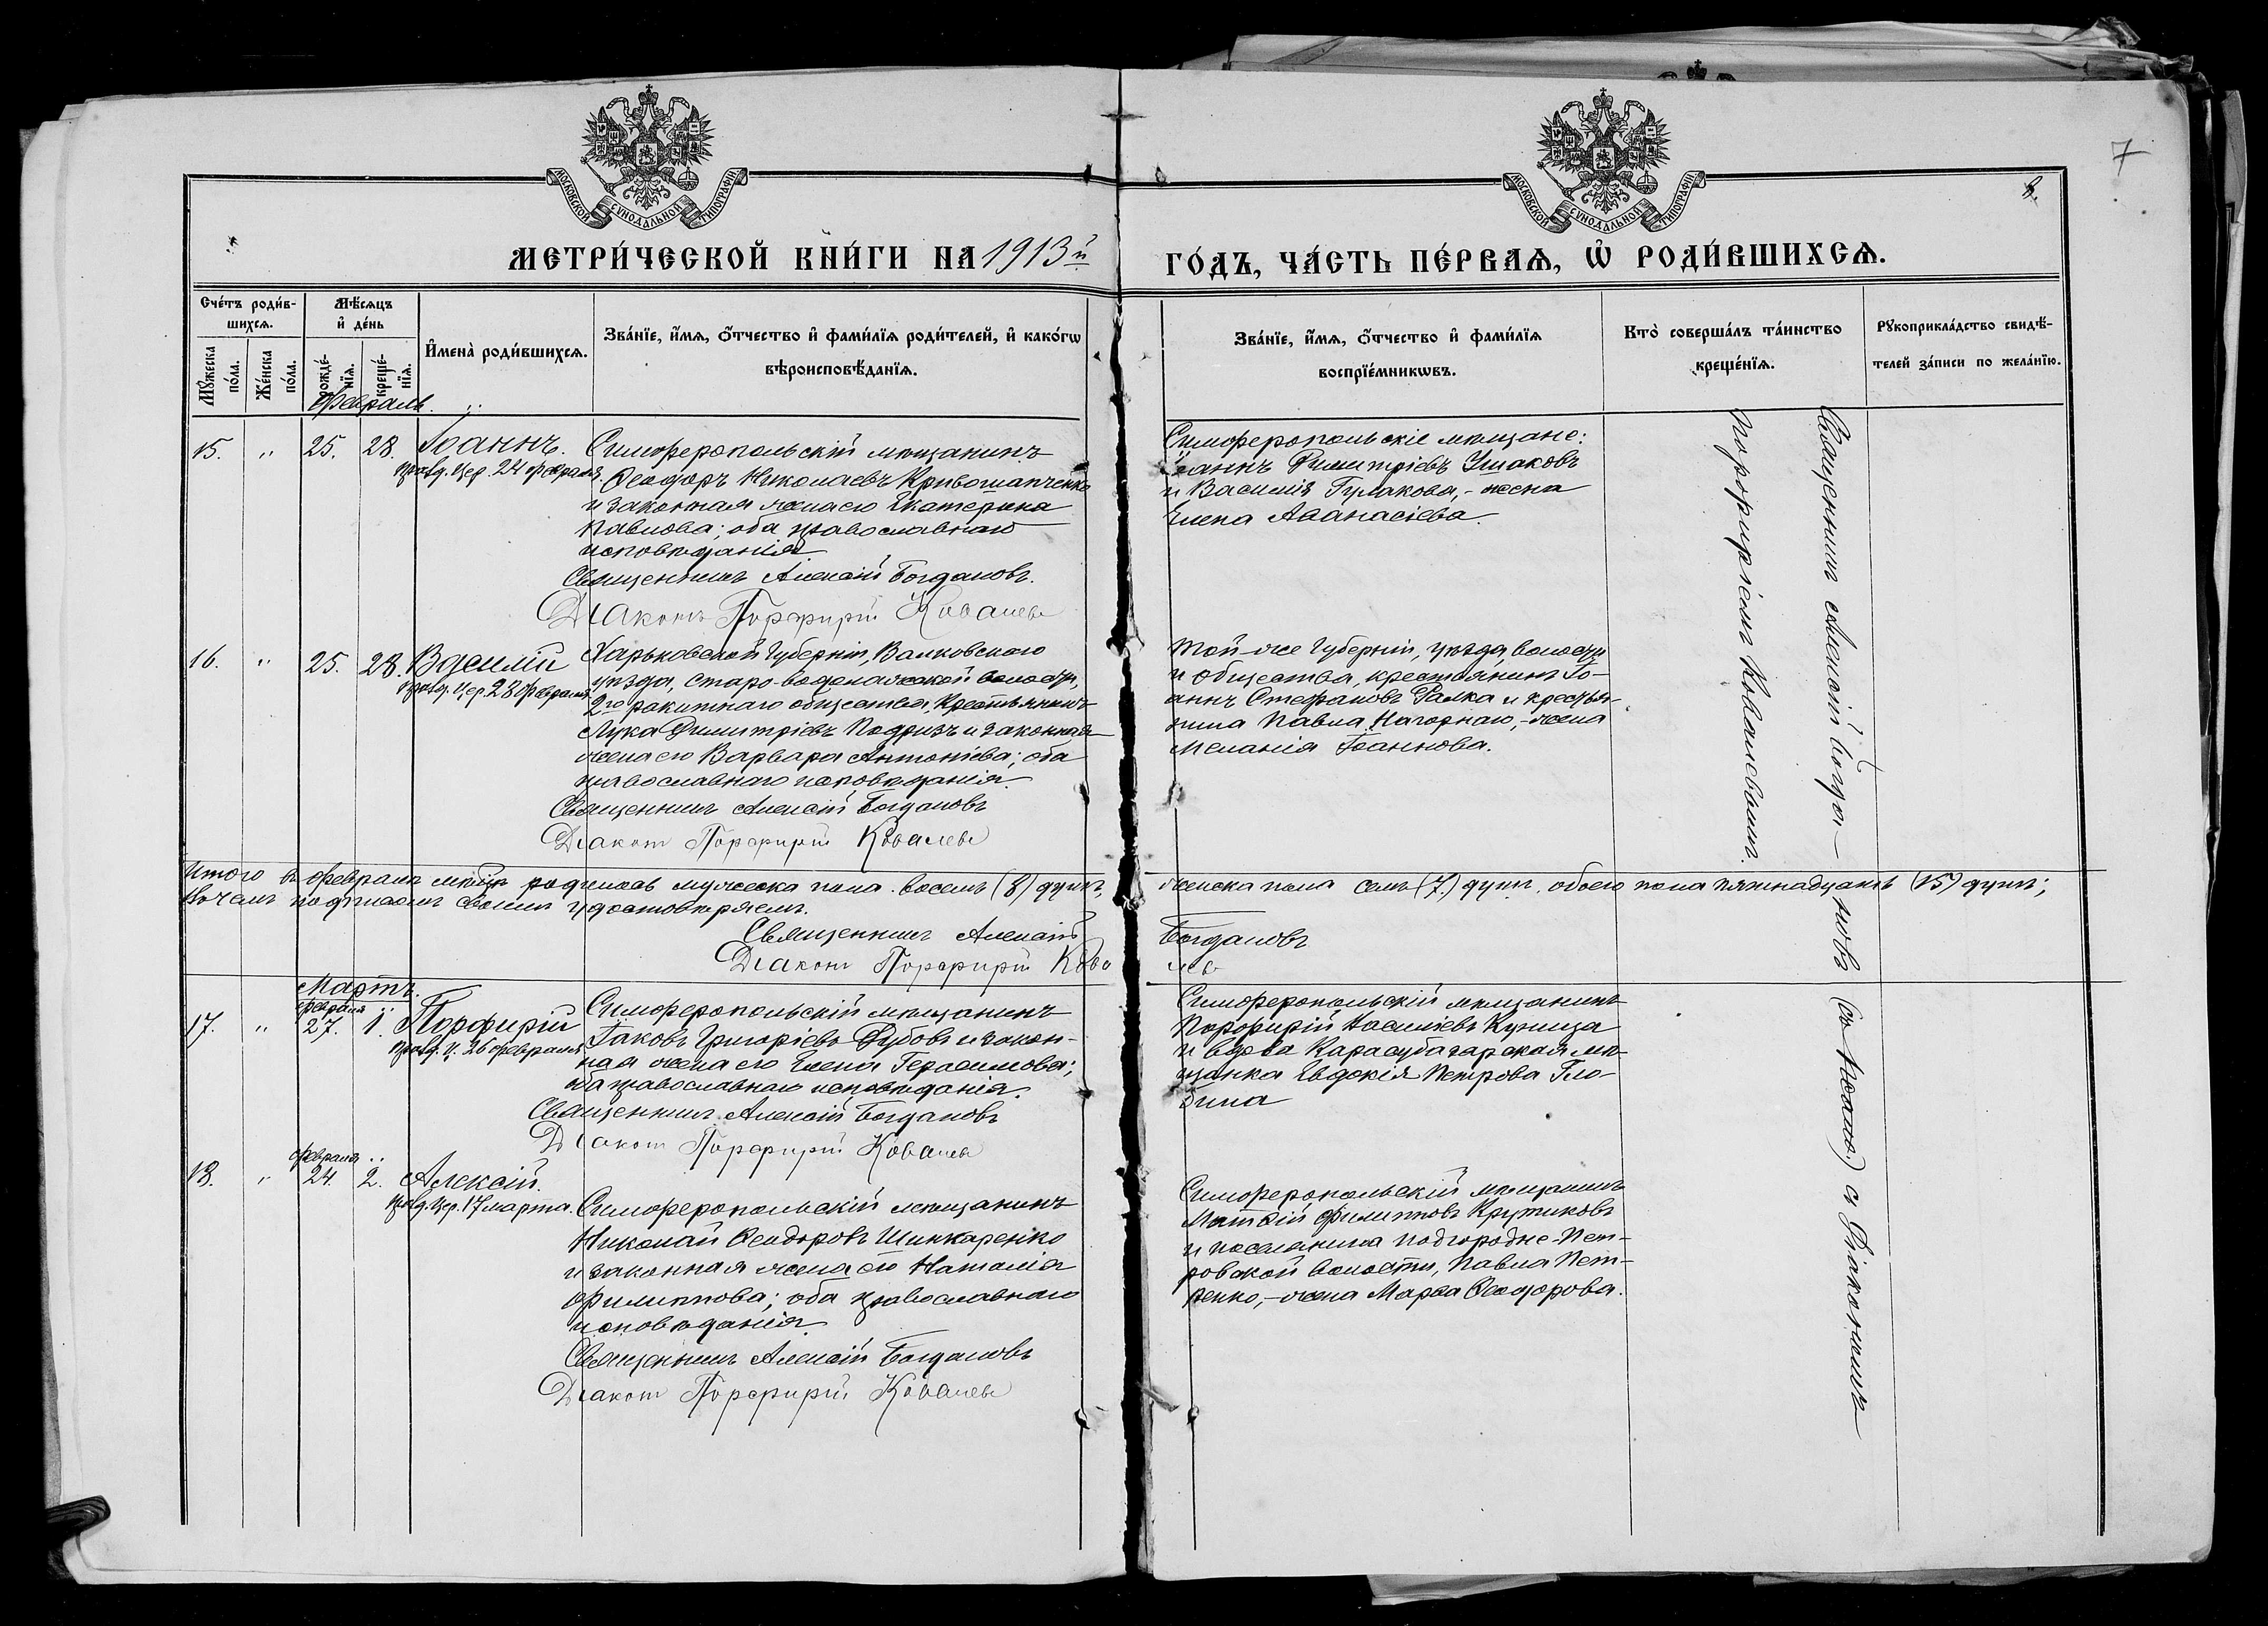 7
8.
МОСКОВСКОЙ СУНОДАЛЬНОЙ ТИПОГРАФІИ
МОСКОВСКОЙ СУНОДАЛЬНОЙ ТИПОГРАФІИ
МЕТРИ́ЧЕСКОЙ КНИ́ГИ НА 1913й
ГО́ДЪ, ЧА́СТЬ ПЕ́РВАѦ, Ѽ РОДИ́ВШИХСѦ.
Сче́тъ роди́в-
шихсѧ.
Мꙋ́жеска
по́ла.
Же́нска
по́ла.
Мѣ́сѧцъ
и҆ де́нь
рожде́-
нїѧ.
креще́-
нїѧ.
И҆мена̀ роди́вшихсѧ.
Зва́нїе, и҆́мѧ, ѻ҆́тчество и҆ фами́лїѧ роди́телей, и҆ како́гѡ
вѣроисповѣ́данїѧ.
Зва́нїе, и҆́мѧ, ѻ҆́тчество и҆ фами́лїѧ
воспрїе́мникѡвъ.
Кто̀ соверша́лъ та́инство
креще́нїѧ.
Рꙋкоприкла́дство свидѣ́-
телей за́писи по жела́нїю.
Февраль.
15. " 25. 28. Іоаннъ.
празд. цер. 24 февраля.
Симферопольскій мѣщанинъ
Ѳеодоръ Николаевъ Кривошапченко
и законная жена его Екатерина
Павлова; оба православнаго
исповѣданія.
Священникъ Алексій Богдановъ.
Діаконъ Порфирій Ковалевъ
Симферопольскіе мѣщане:
Іоаннъ Димитріевъ Ушаковъ
и Василія Гулакова, - жена
Елена Аѳанасіева.
16. " 25. 28. Василій
празд. цер. 28 февраля.
Харьковской Губерніи, Валковскаго
уѣзда, Старо-водолажской волости,
2го ракитнаго общества, крестьянинъ
Лука Димитріевъ Подризъ и законная
жена его Варвара Антоніева; оба
православнаго исповѣданія.
Священникъ Алексій Богдановъ
Діаконъ Порфирій Ковалевъ
Той-же Губерніи, уѣзда, волости
и общества, крестьянинъ Іо-
аннъ Стефановъ Галка и крестья-
нина Павла Нагорнаго, - жена
Меланія Іоаннова.
Итого въ февралѣ мѣсяцѣ родилось мужеска пола восемь (8) душъ, женска пола семь (7) душъ, обоего пола пятнадцать (15) душъ;
въ чемъ подписомъ своимъ удостовѣряемъ.
Священникъ Алексій Богдановъ
Діаконъ Порфирій Ковалевъ
Мартъ.
февраля
17. " 27. 1. Порфирій
празд. ц. 26 февраля
Симферопольскій мѣщанинъ
Іаковъ Григоріевъ Дубовъ и закон-
ная жена его Елена Герасимова;
оба православнаго исповѣданія.
Священникъ Алексій Богдановъ
Діаконъ Порфирій Ковалевъ
Симферопольскій мѣщанинъ
Порфирій Василіевъ Куница
и вдова Карасубазарская мѣ-
щанка Евдокія Петрова Гло-
бина
февраля
18. " 24. 2. Алексій.
празд. цер. 17 марта.
Симферопольскій мѣщанинъ
Николай Ѳеодоровъ Шинкаренко
и законная жена его Наталія
Филиппова; оба православнаго
исповѣданія.
Священникъ Алексій Богдановъ
Діаконъ Порфирій Ковалевъ
Симферопольскій мѣщанинъ
Матѳій Филипповъ Крутиковъ
и поселянина Подгородне-Пет-
ровской волости, Павла Пет-
ренко, - жена Марѳа Ѳеодорова.
Священникъ Алексій Богда-новъ съ діакономъ
Порфиріемъ Ковалевымъ.